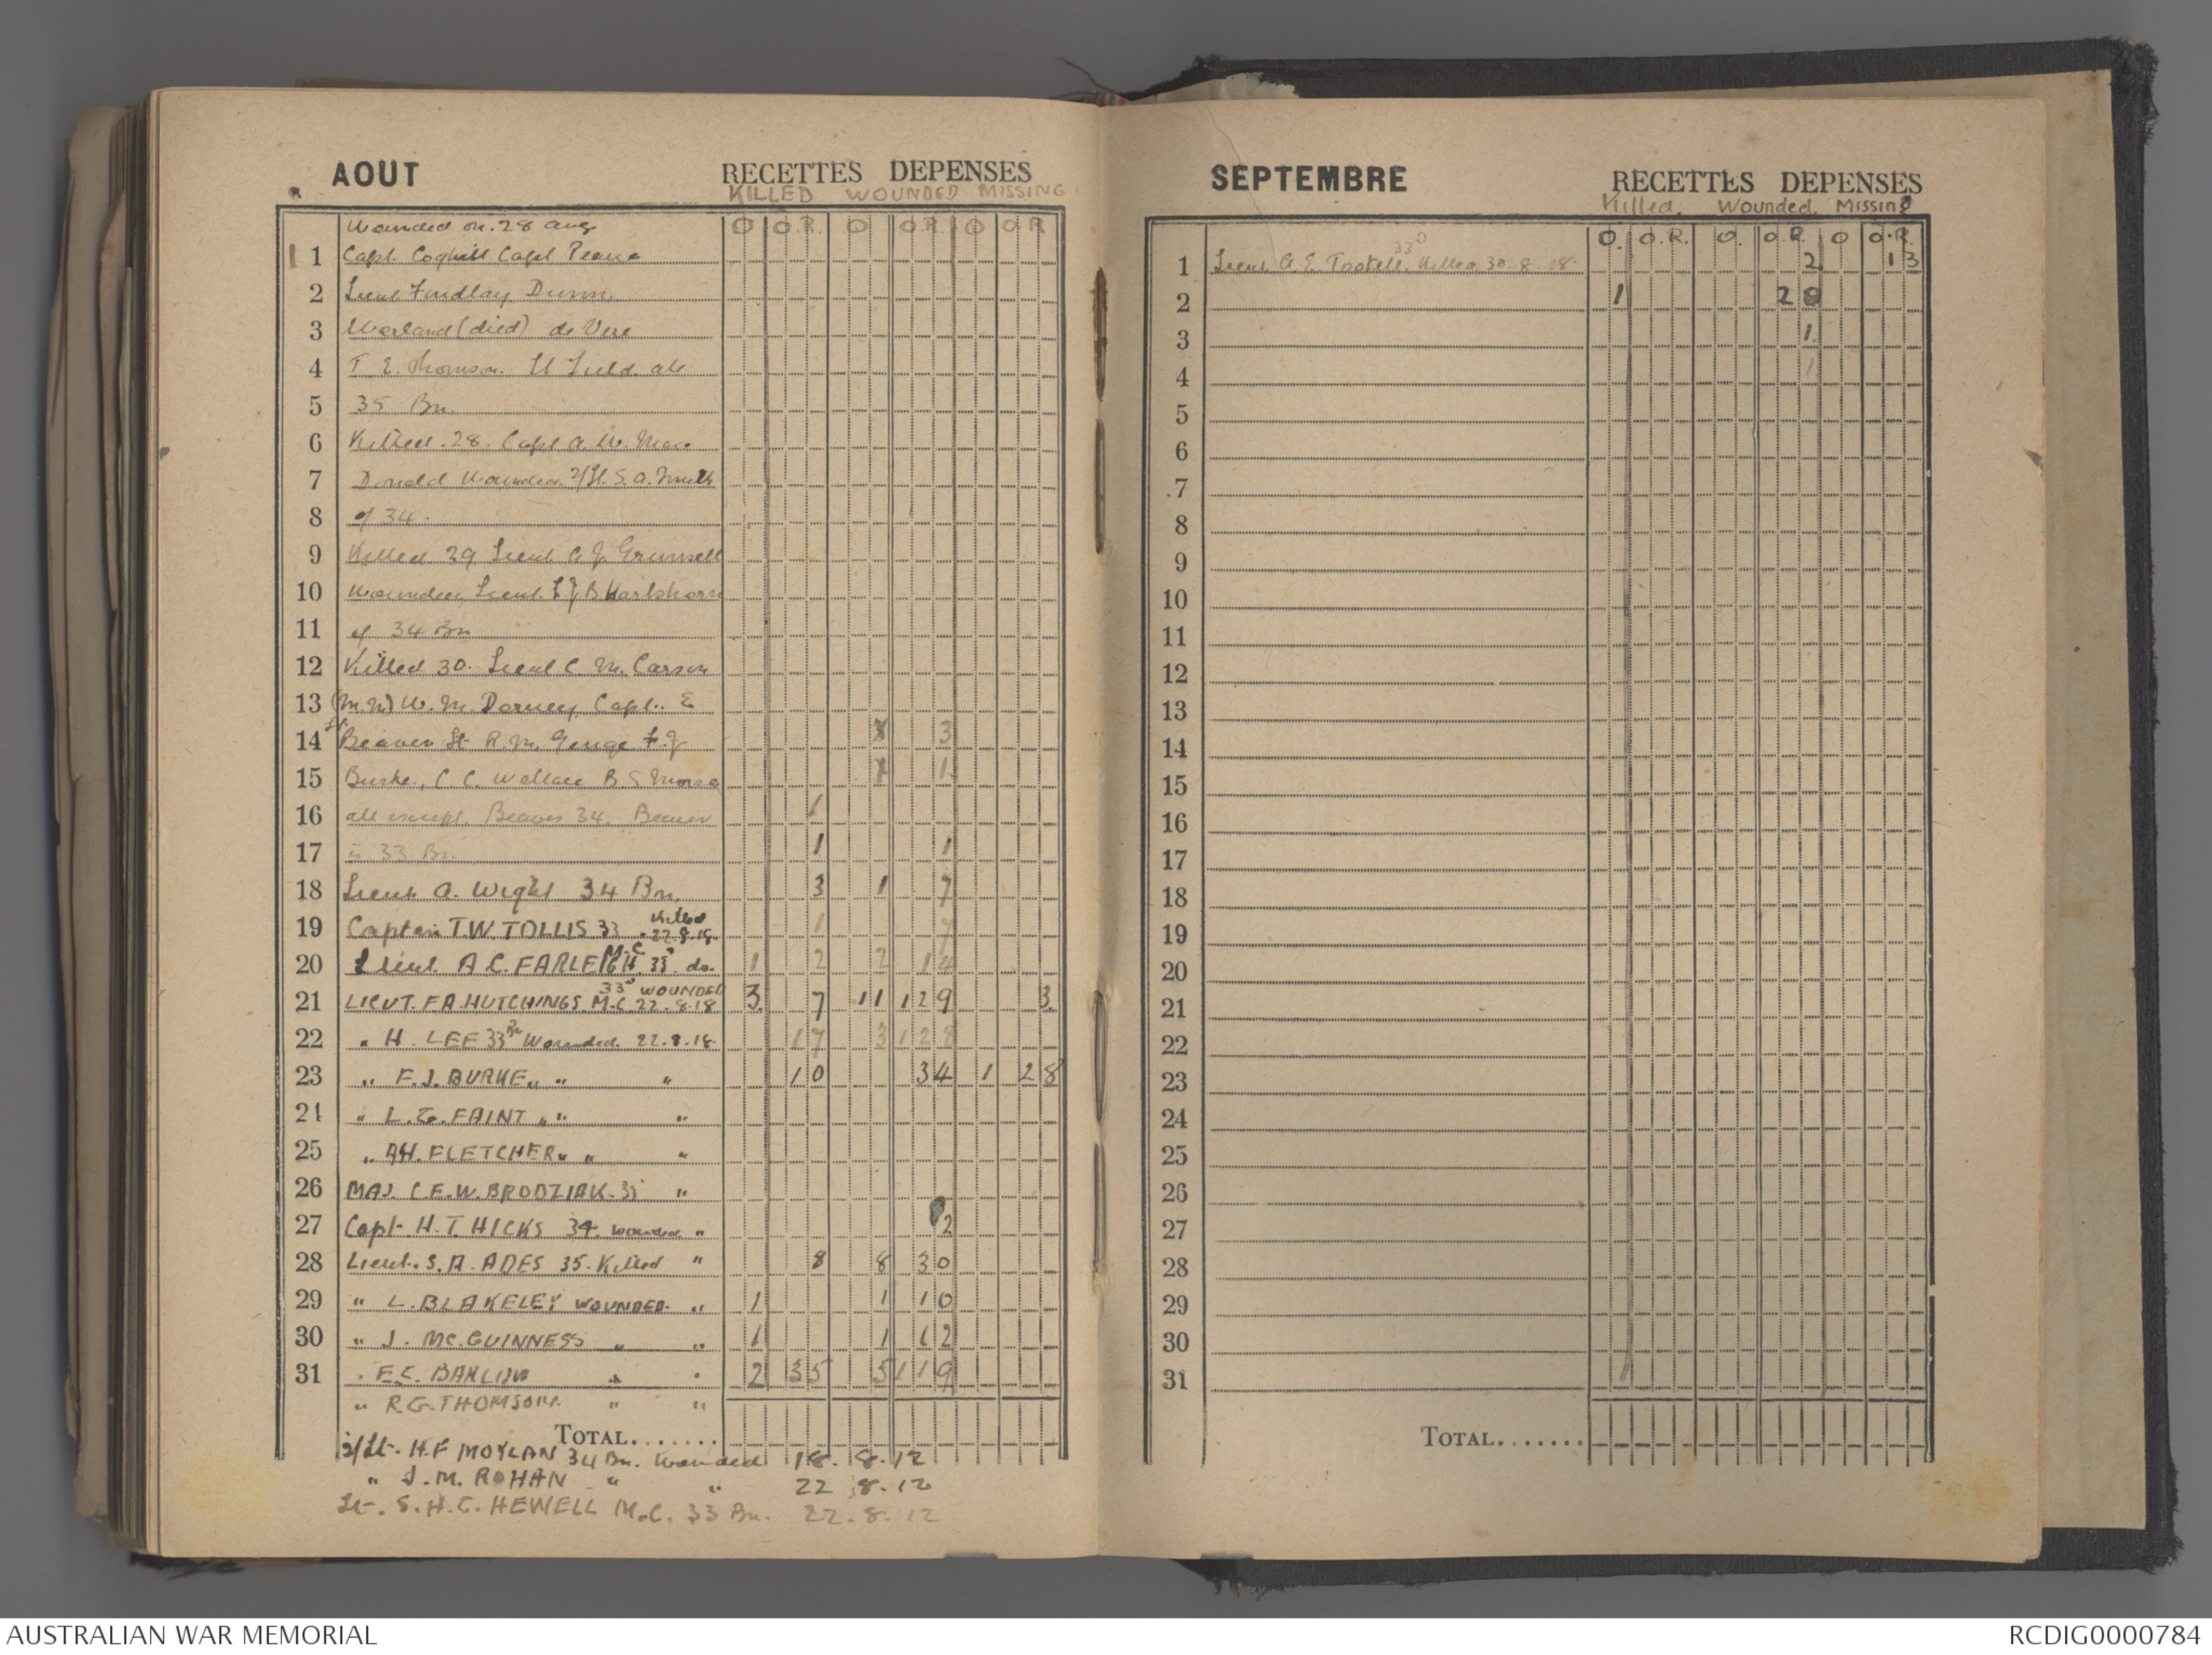 AOUT RECETTES DEPENSES
KILLED WOUNDED MISSING
Wounded on 28 Aug O O.R. O O.R. O O R
1 Capt. Coghill Capt
2 Lieut Findlay Dunn
3 (died) de Vere
4 T E. Thomson. Lt Field all
5 35 Bn.
6 Killed 28. Capt A. W. Mac
7 Donald Wounded 2/Lt. S. A. Smith
8 of 34.
9 Killed 29 Lieut
10 Wounded Lieut.
11 of 34 Bn
12 Killed 30. Lieut C. M. Carson
13 (M.M) W. M. Dorney, Capt. E
14 Beaver Lt R. M. F. J 3
15 Burke, C. C. Wallace B. S. 1
16 all except Beaver 34. Beaver 1
17 is 33 Bn. 1 1
18 Lieut A. Wight 34 Bn. 3 1 7
19 Captain T.W. TOLLIS 33 Killed 22.8.18. 1 7
20 Lieut. A C. FARLEIGH M.C 33 do. 1 2 2 14
21 LIEUT. F.A. HUTCHINGS. M.C. 33 WOUNDED 22.8.18 3 7 11 129 3
22 " H. LEE 33 Wounded. 22.8.18 17 3 128
23 " F.J. BURKE " " " 10 34 1 28
24 " L.G. FAINT " " "
25 " A.H. FLETCHER " " "
26 MAJ. C.E.W. BRODZIAK. 33 "
27 Capt. H.T. HICKS 34 wounded " 2
28 Lieut. S.A. ADES 35. Killed " 8 8 30
29 " L. BLAKELEY WOUNDED. " 1 1 10
30 " J. MC.GUINNESS " " 1 1 12
31 " E.C. " " 2 35 5 119
" R.G. THOMSON. " "
TOTAL.......
2/Lt. H.F MOYLAN 34 Bn. wounded 18.8.12
" J.M. ROHAN " " 22.8.12
Lt. S.H.C. HEWELL M.C. 33 Bn. 22.8.12
SEPTEMBRE RECETTES DEPENSES
Killed. Wounded. Missing
O. O.R. O. O R. O O.R.
1 Lieut. G. E. 33 Killed 30.8.18. 2 13
2 1 20
3 1
4 1
5
6
7
8
9
10
11
12
13
14
15
16
17
18
19
20
21
22
23
24
25
26
27
28
29
30
31 1
TOTAL.......
AUSTRALIAN WAR MEMORIAL RCDIG0000784